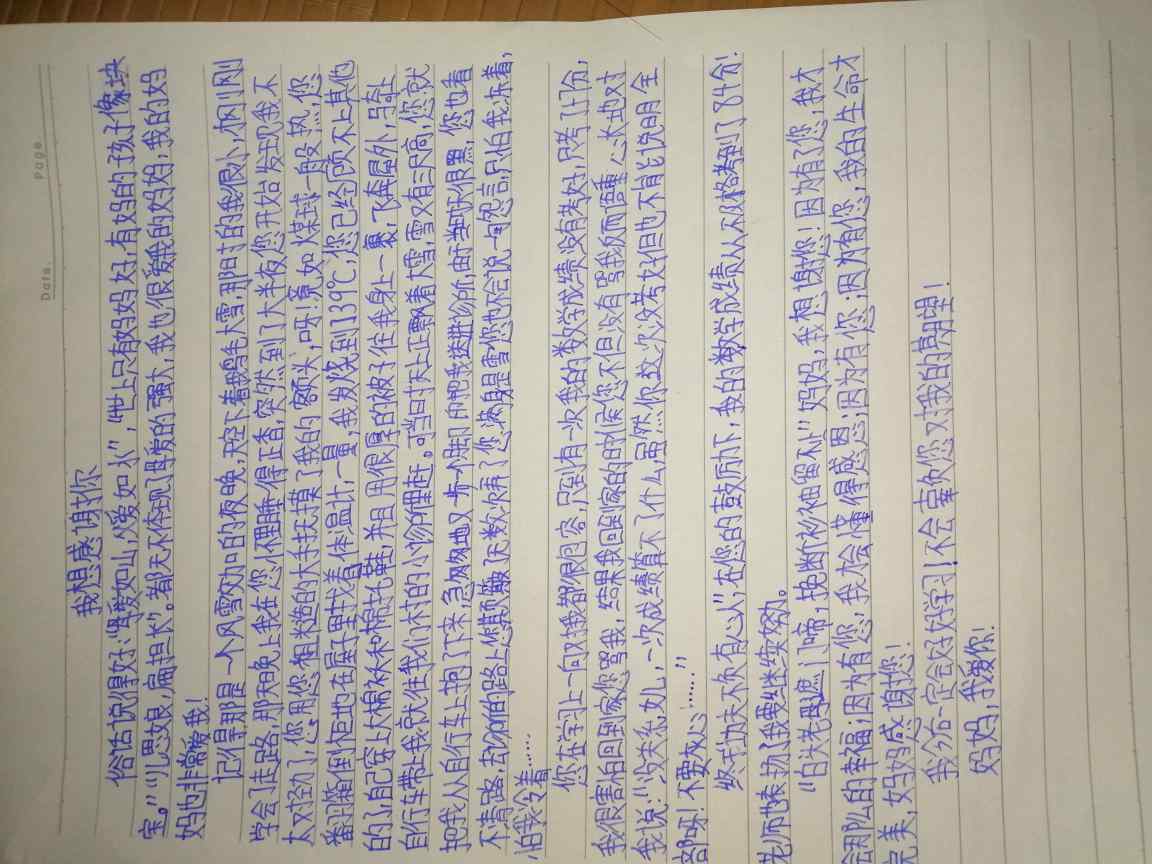 Date.
Page.
我想感谢你
俗话说得好:"父爱如山,母爱如水","世上只有妈妈好,有妈的孩子像块
宝。""儿思娘,扁担长"。都无不体现了母爱的强大,我也很爱我的妈妈,我的妈
妈也非常爱我!
记得那是一个风雪交加的夜晚,天空下着鹅毛大雪,那时的我很小,
学会了走路,那天晚上我在您怀里睡得正香,突然到了大半夜您开始发现我不
太对劲了,您用您粗糙的大手抚摸了我的额头,呀!竟如煤球一般热,您
番羽箱倒柜地在屋子里找着体温计,一量,我发烧到了39℃,您已经顾不上其他
的了,自己穿上大棉袄和棉拖鞋,并且用很厚的被子往我身上一裹,飞奔屋外,骑上
自行车带上我就往我们村的小诊所里赶。可当时天上正飘着大雪,雪又有三尺高,您就
把我从自行车上抱了下来,急匆匆地又一步一个脚印的把我送进诊所,由于当时天很黑,您也看
不清路,
怕我冷着……
您在学习上一向对我都很包容,只到有一次我的数学成绩没有考好,只考了47分,
我很害怕回到家您骂我,结果我回到家的时候您不但没有骂我反而语重心长地对
我说:"没关系女儿,一次成绩算不了什么,虽然你这次没考好但也不肯能说明全
部呀!不要灰心!……"
终于功夫不负有心人,在您的鼓励下,我的数学成绩从不及格考到了84分!
老师也表扬了我要继续努力。
"白头老母遮门啼,挽断衫袖留不止"妈妈,我想谢谢您!因为有了您,我才
会那么的幸福;因为有您,我才会懂得感恩;因为有你;因为有您,我的生命才
完美,妈妈感谢您!
我今后一定会好好学习!不会辜负您对我的期望!
妈妈,我爱你!